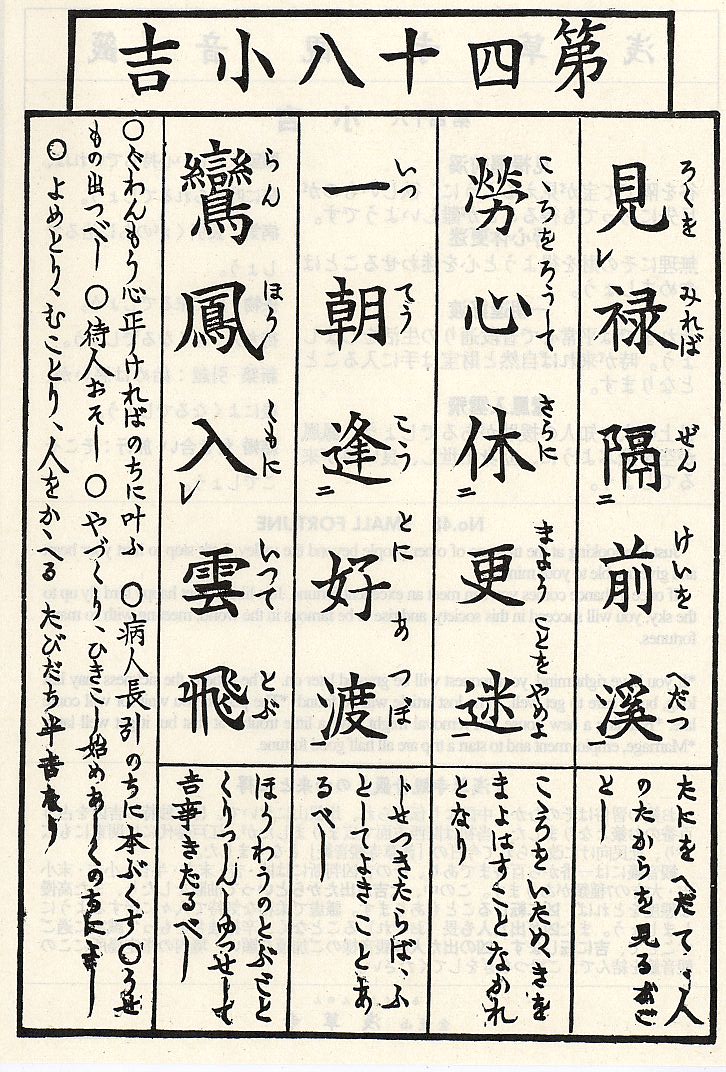 第四十八小吉
見禄隔前溪
ろくを みれば ぜん けいを へだつ
たにをへだてゝ人
のたからを見るがご
とし
勞心休更迷
こゝろをろうして さらに まよふ ことをやめよ
こゝろをいためきを
まよはすことなかれ
となり
一朝逢好渡
いつ てう こう とに あ つぼ
じせつきたらば、ふ
としてよきことあ
るべし
鸞鳳入雲飛
らん ほう くもに いつて とぶ
ほうわうのとぶごと
くりつしんしゆつせして
吉事きたるべし
〇ぐわんもう心正しければのちに叶ふ 〇病人長引のちに本ぶくす 〇うせ
もの出づべし 〇待人おそし 〇やづくり、ひきこし始めあしくのち
〇よめとり、むことり、人をかゝへる たびだち半吉なり